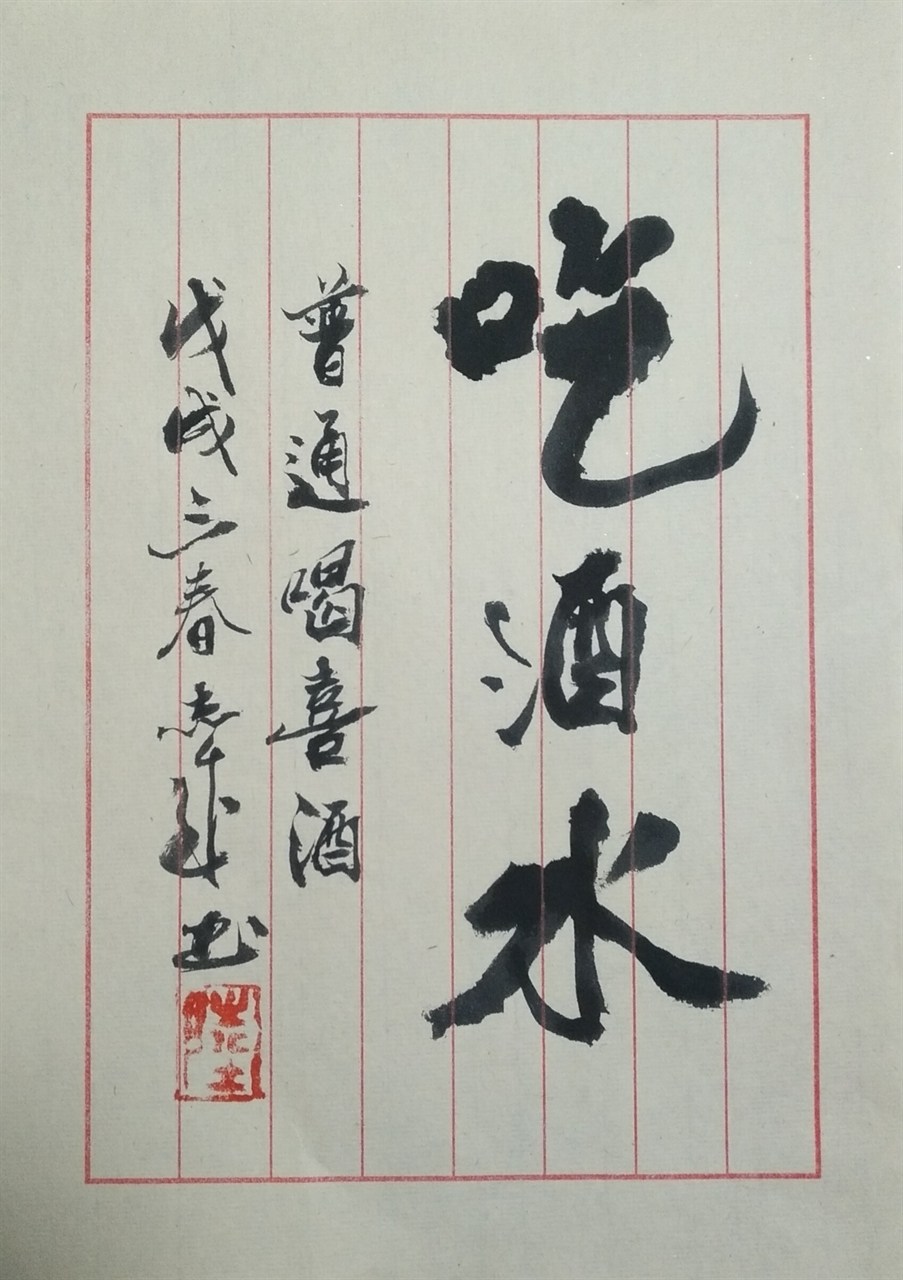 吃酒水
普通喝喜酒
戊戌三春志华书